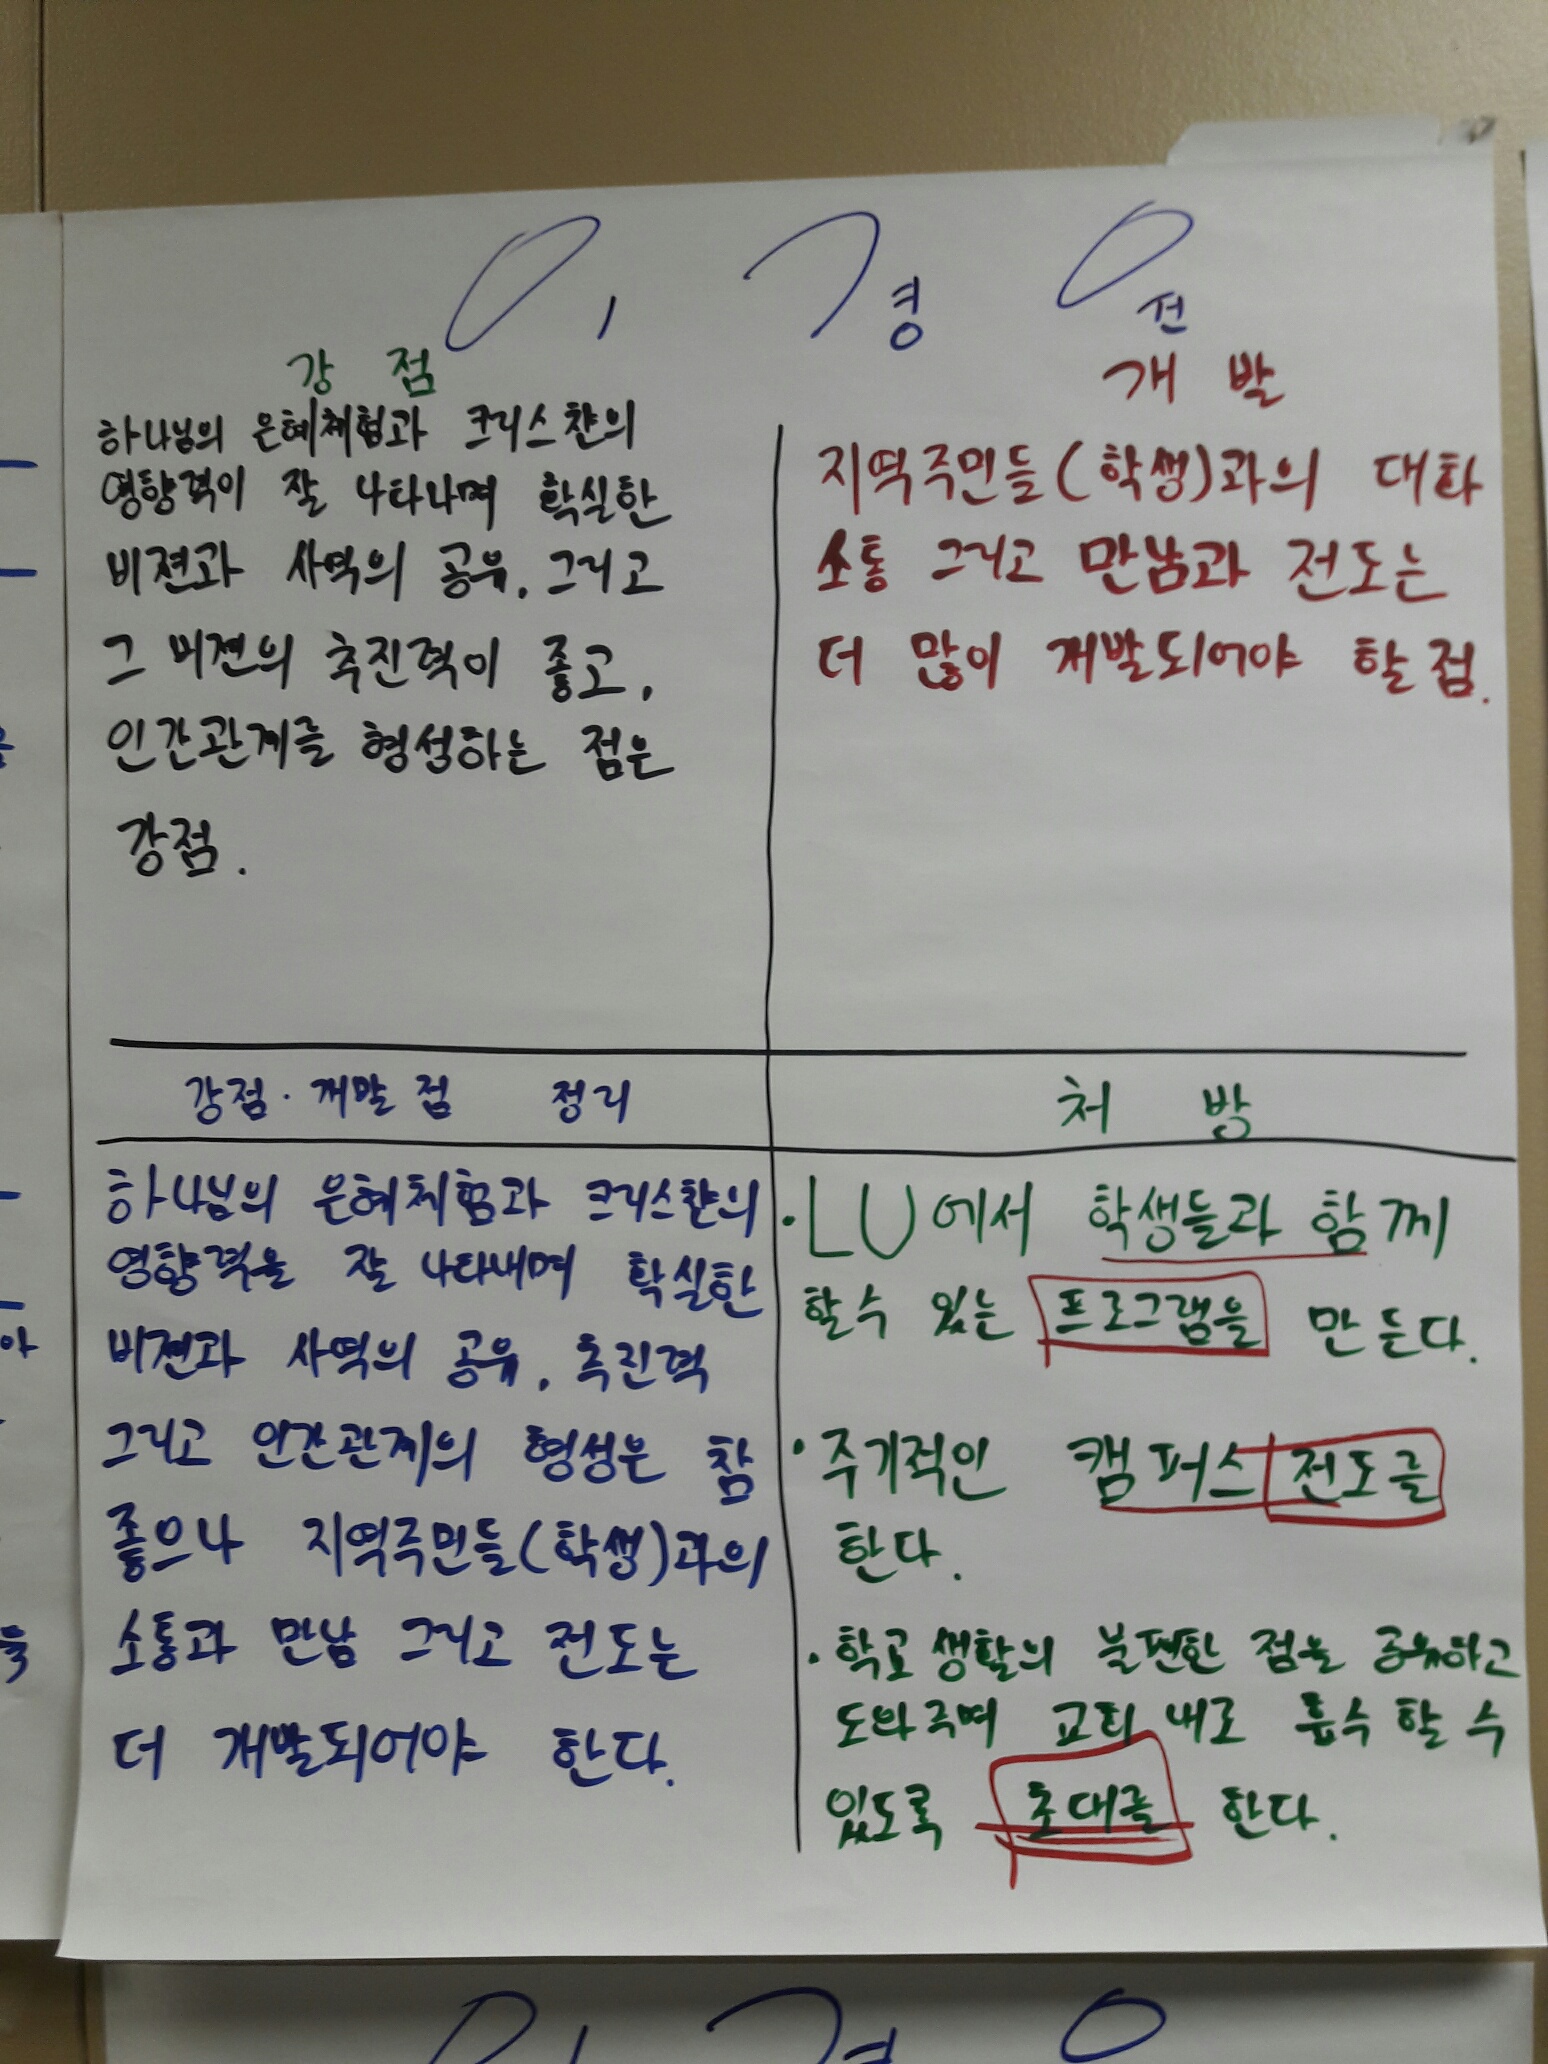 이 경 원
강 점
하나님의 은혜체험과 크리스챤의
영향력이 잘 나타나며 확실한
비젼과 사역의 공유. 그리고
그 비젼의 추진력이 좋고,
인간관계를 형성하는 점은
강점.
개 발
지역주민들(학생)과의 대화
소통 그리고 만남과 전도는
더 많이 개발되어야 할 점.
강점·개발점 정리
하나님의 은혜체험과 크리스챤의
영향력을 잘 나타내며 확실한
비젼과 사역의 공유, 추진력
그리고 인간관계의 형성은 참
좋으나 지역주민들(학생)과의
소통과 만남 그리고 전도는
더 개발되어야 한다.
처 방
·LU에서 학생들과 함께
할수 있는 프로그램을 만든다.
·주기적인 캠퍼스 전도를
한다.
·학교생활의 불편한 점을 공유하고
도와주며 교회 내로 흡수할 수
있도록 초대를 한다.